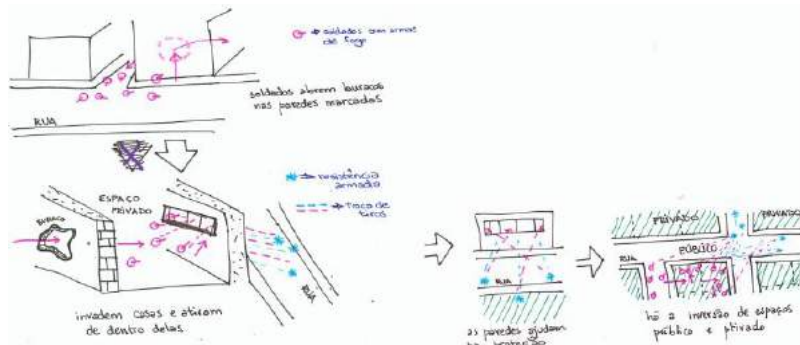 soldados com armas
de fogo
soldados abrem buracos
nas paredes marcadas
RUA
ESPAÇO
PRIVADO
BURACO
resistência
armada
troca de
tiros
RUA
invadem casas e atiram
de dentro delas
RUA
as paredes ajudam
na proteção
PRIVADO
PRIVADO
PÚBLICO
RUA
há a inversão de espaços
público e privado